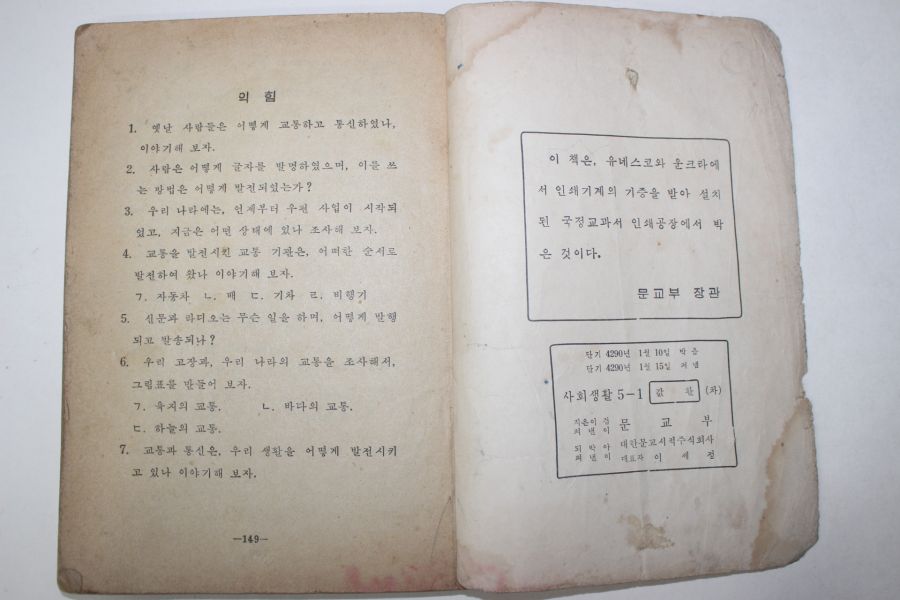 익 힘
1. 옛날 사람들은 어떻게 교통하고 통신하였나,
이야기해 보자.
2. 사람은 어떻게 글자를 발명하였으며, 이를 쓰
는 방법은 어떻게 발전되었는가?
3. 우리 나라에는, 언제부터 우편 사업이 시작되
었고, 지금은 어떤 상태에 있나 조사해 보자.
4. 교통을 발전시킨 교통 기관은, 어떠한 순서로
발전하여 왔나 이야기해 보자.
ㄱ. 자동차 ㄴ. 배 ㄷ. 기차 ㄹ. 비행기
5. 신문과 라디오는 무슨 일을 하며, 어떻게 발행
되고 발송되나?
6. 우리 고장과, 우리 나라의 교통을 조사해서,
그림표를 만들어 보자.
ㄱ. 육지의 교통. ㄴ. 바다의 교통.
ㄷ. 하늘의 교통.
7. 교통과 통신은, 우리 생활을 어떻게 발전시키
고 있나 이야기해 보자.
—149—
이 책은, 유네스코와 운크라에
서 인쇄기계의 기증을 받아 설치
된 국정교과서 인쇄공장에서 박
은 것이다.
문교부 장관
단기 4290년 1월 10일 박음
단기 4290년 1월 15일 펴냄
사회생활 5-1 값 환 (차)
지은이 겸
펴낸이 문 교 부
되박아
펴낸이 대한문교서적주식회사
대표자 이 세 정